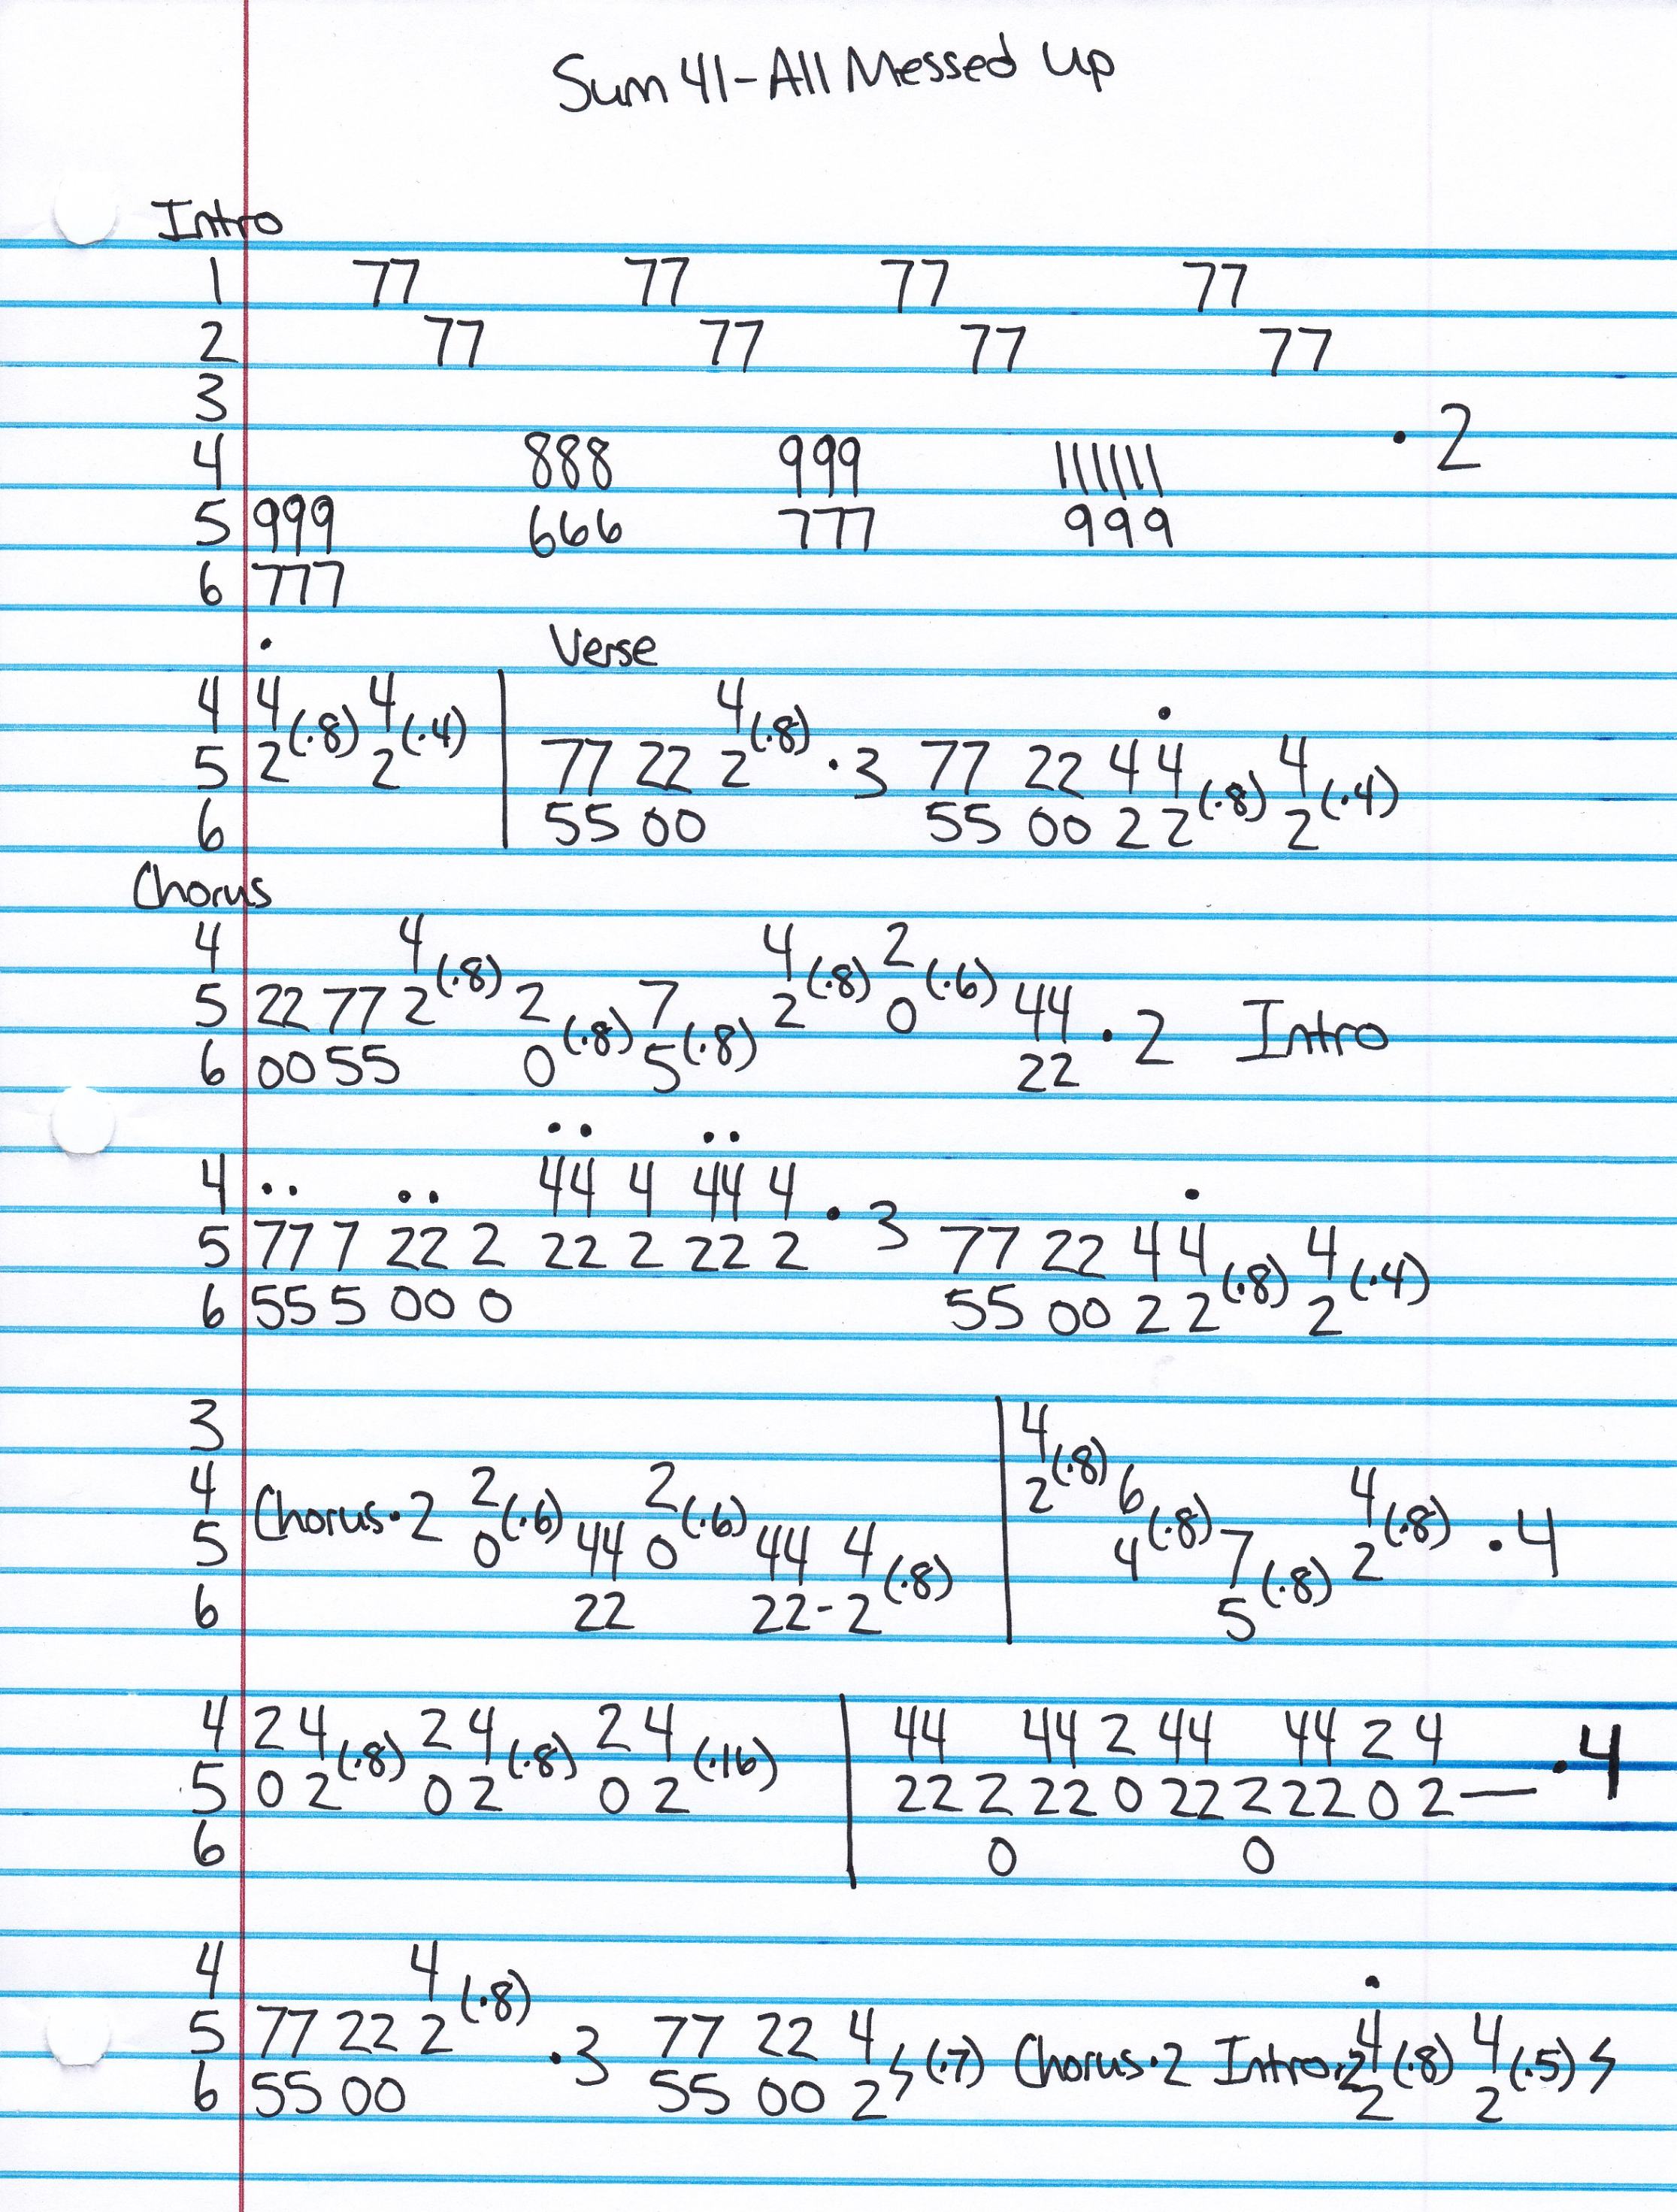 Sum 41-All Messed Up
Intro
1 77 77 77 77
2 77 77 77 77
3
4 888 999 111111 ·2
5 999 666 777 999
6 777
· Verse
4 4(·8) 4(·4) 4(·8) ·
5 2 2 77 22 2 ·3 77 22 4 4(·8) 4(·4)
6 55 00 55 00 2 2 2
Chorus
4 4(·8) 4(·8) 2(·6)
5 22 77 2 2(·8) 7(·8) 2 0 44 ·2 Intro
6 00 55 0 5 22
·· ··
4 ·· ·· 44 4 44 4 ·3 ·
5 77 7 22 2 22 2 22 2 77 22 4 4(·8) 4(·4)
6 55 5 00 0 55 00 2 2 2
3 4(·8)
4 Chorus·2 2(·6) 2(·6) 2 6(·8) 4(·8) ·4
5 0 44 0 44 4(·8) 4 7(·8) 2
6 22 22-2 5
4 2 4(·8) 2 4(·8) 2 4(·16) 44 44 2 44 44 2 4 ·4
5 0 2 0 2 0 2 22 2 22 0 22 2 22 0 2—
6 0 0
4 4(·8) ·
5 77 22 2 ·3 77 22 4 (·7) Chorus·2 Intro·2 4(·8) 4(·5)
6 55 00 55 00 2 2 2